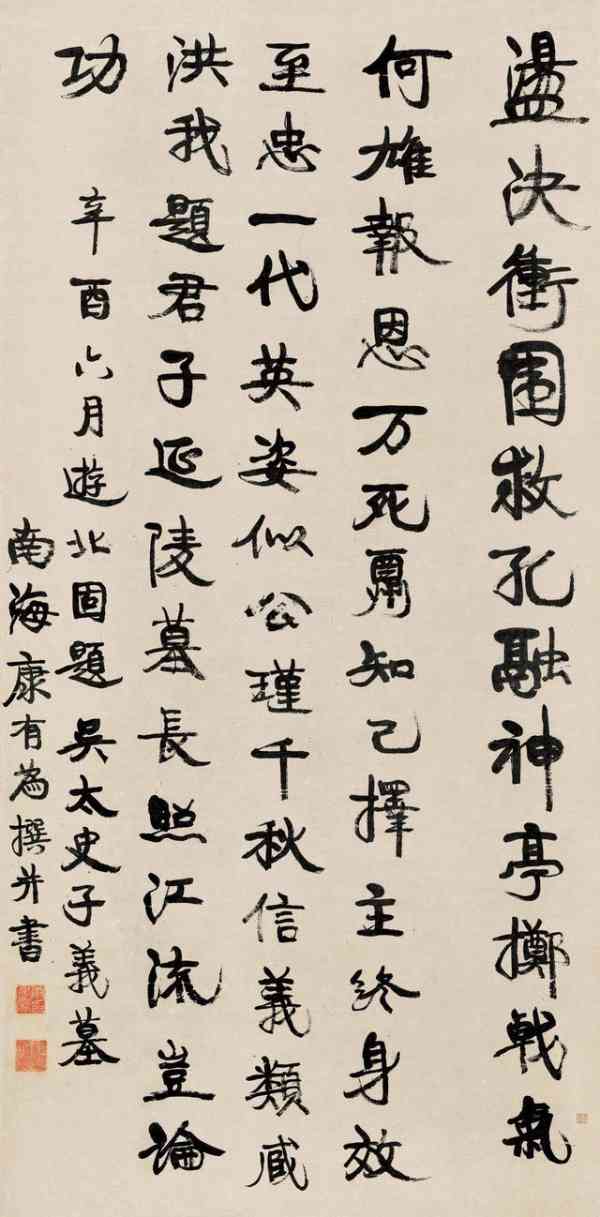 盪決衝圍救孔融神亭擲戟氣
何雄報恩万死酬知己擇主終身效
至忠一代英姿似公瑾千秋信義類臧
洪我題君子延陵墓長照江流豈論
功
辛酉六月遊北固題吳太史子義墓
南海康有為撰并書